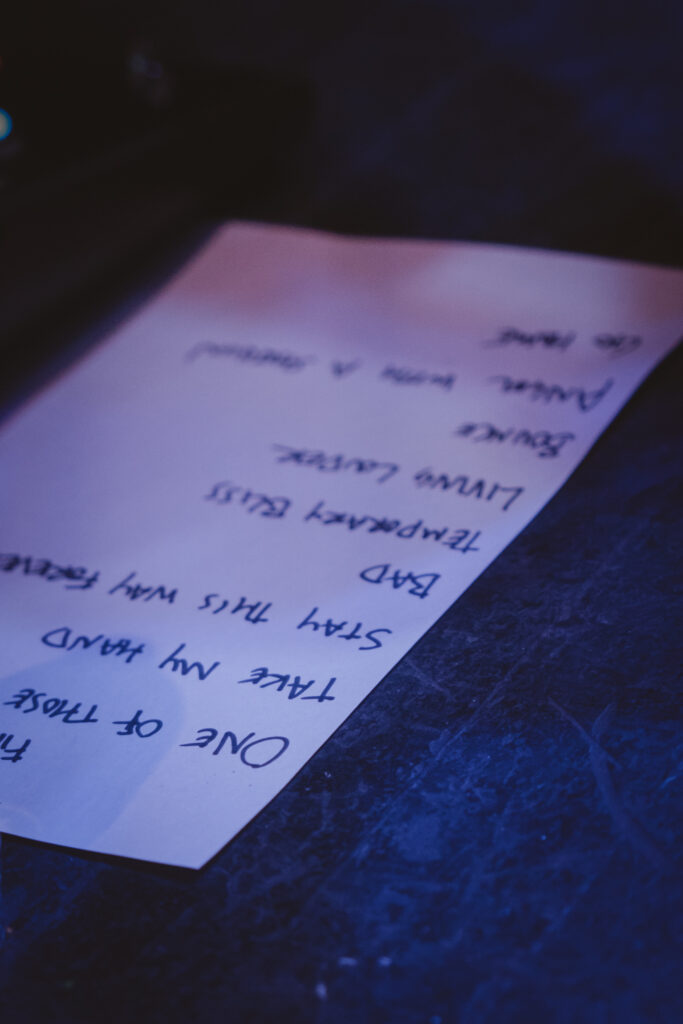 ONE OF THOSE
TAKE MY HAND
STAY THIS WAY FOREVE
BAD
TEMPORARY BLISS
LIVING LOUDER
BOUNCE
WITH A
HOME